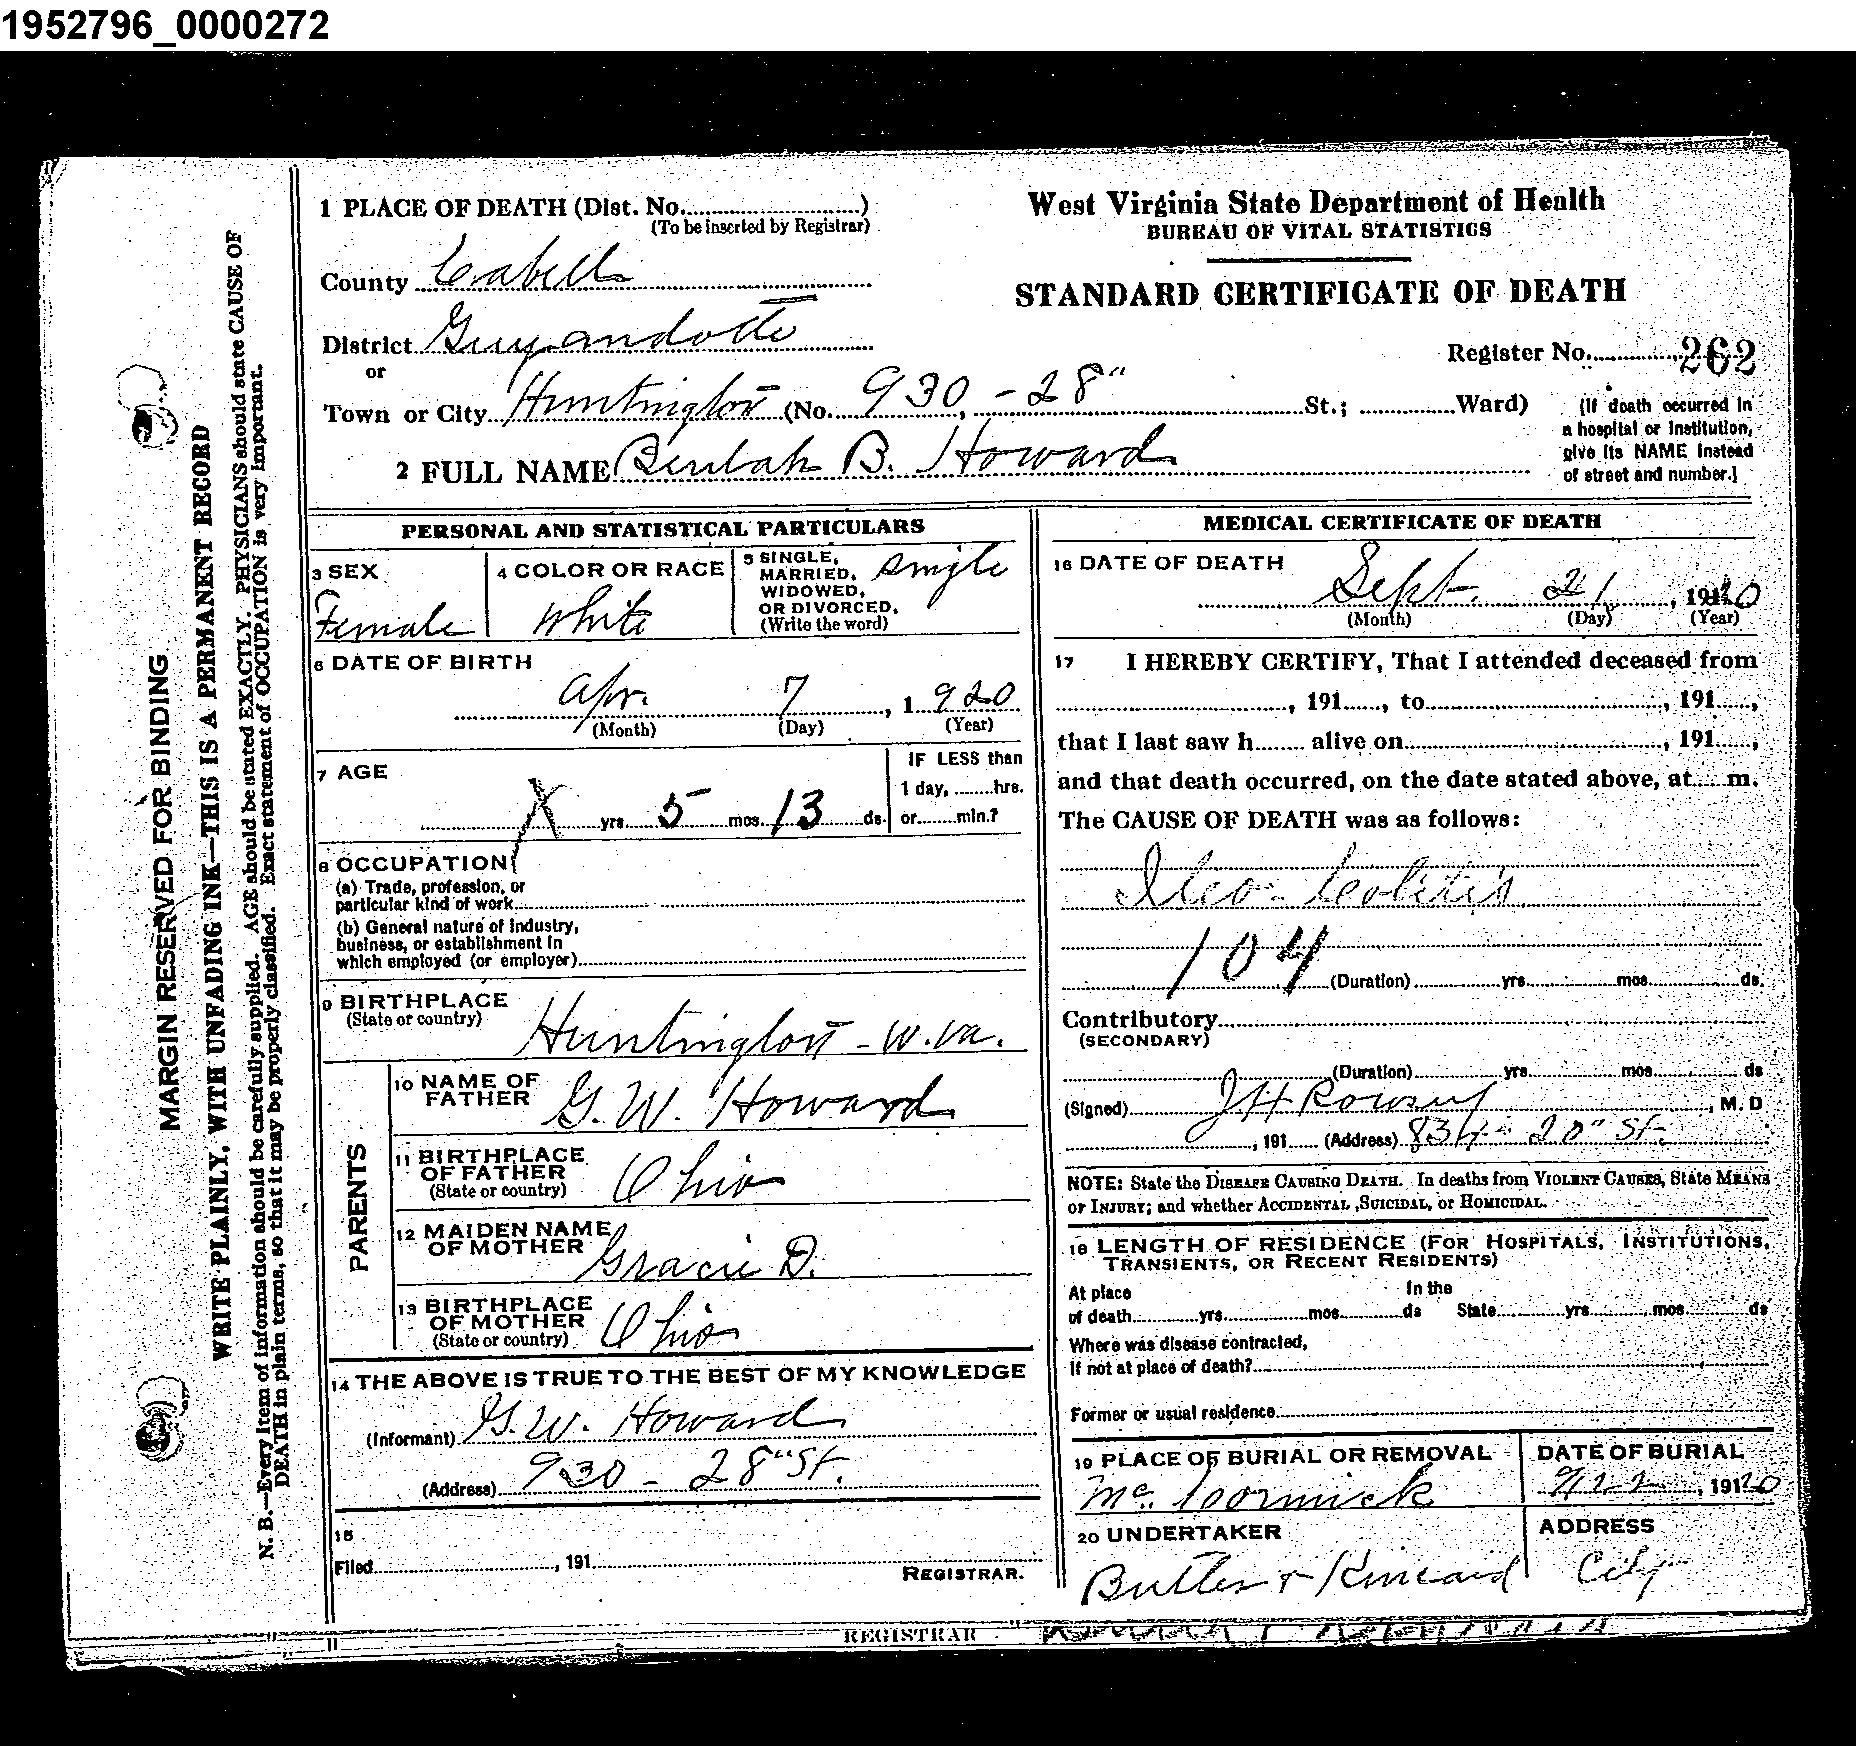 1952796_0000272
1 PLACE OF DEATH (Dist. No. )
(To be inserted by Registrar)
County Cabell
District Guyandotte
or
Town or City Huntington (No. 930, - 28" St.; Ward)
2 FULL NAME Beulah B. Howard
West Virginia State Department of Health
BUREAU OF VITAL STATISTICS
STANDARD CERTIFICATE OF DEATH
Register No. 262
(If death occurred in
a hospital or institution,
give its NAME instead
of street and number.]
MARGIN RESERVED FOR BINDING
WRITE PLAINLY, WITH UNFADING INK—THIS IS A PERMANENT RECORD
N. B.—Every item of information should be carefully supplied. AGE should be stated EXACTLY. PHYSICIANS should state CAUSE OF
DEATH in plain terms, so that it may be properly classified. Exact statement of OCCUPATION is very important.
PERSONAL AND STATISTICAL PARTICULARS
3 SEX
Female
4 COLOR OR RACE
White
5 SINGLE,
MARRIED,
WIDOWED,
OR DIVORCED,
(Write the word)
Single
6 DATE OF BIRTH
Apr. 7, 1920
(Month) (Day) (Year)
7 AGE
X yrs. 5 mos. 13 ds.
IF LESS than
1 day, hrs.
or min.?
8 OCCUPATION
(a) Trade, profession, or
particular kind of work
(b) General nature of industry,
business, or establishment in
which employed (or employer)
9 BIRTHPLACE
(State or country)
Huntington - W. Va.
PARENTS
10 NAME OF
FATHER G. W. Howard
11 BIRTHPLACE
OF FATHER
(State or country) Ohio
12 MAIDEN NAME
OF MOTHER Gracie D.
13 BIRTHPLACE
OF MOTHER
(State or country) Ohio
14 THE ABOVE IS TRUE TO THE BEST OF MY KNOWLEDGE
(Informant) G. W. Howard
(Address) 930 - 28" St.
15
Filed , 191
REGISTRAR.
MEDICAL CERTIFICATE OF DEATH
16 DATE OF DEATH
Sept. 21, 1920
(Month) (Day) (Year)
17 I HEREBY CERTIFY, That I attended deceased from
, 191 , to , 191 ,
that I last saw h alive on , 191 ,
and that death occurred, on the date stated above, at m.
The CAUSE OF DEATH was as follows:
Ileo-Colitis
104
(Duration) yrs. mos. ds.
Contributory
(SECONDARY)
(Duration) yrs. mos. ds
(Signed) J H Rowsey, M. D
, 191 (Address) 834 - 20" St.
NOTE: State the DISEASE CAUSING DEATH. In deaths from VIOLENT CAUSES, State MEANS
OF INJURY; and whether ACCIDENTAL ,SUICIDAL, or HOMICIDAL.
18 LENGTH OF RESIDENCE (FOR HOSPITALS, INSTITUTIONS,
TRANSIENTS, OR RECENT RESIDENTS)
At place In the
of death yrs. mos. ds State yrs. mos. ds
Where was disease contracted,
If not at place of death?
Former or usual residence
19 PLACE OF BURIAL OR REMOVAL
McCormick
DATE OF BURIAL
9/22, 1920
20 UNDERTAKER
Butler & Kincaid
ADDRESS
City
REGISTRAR